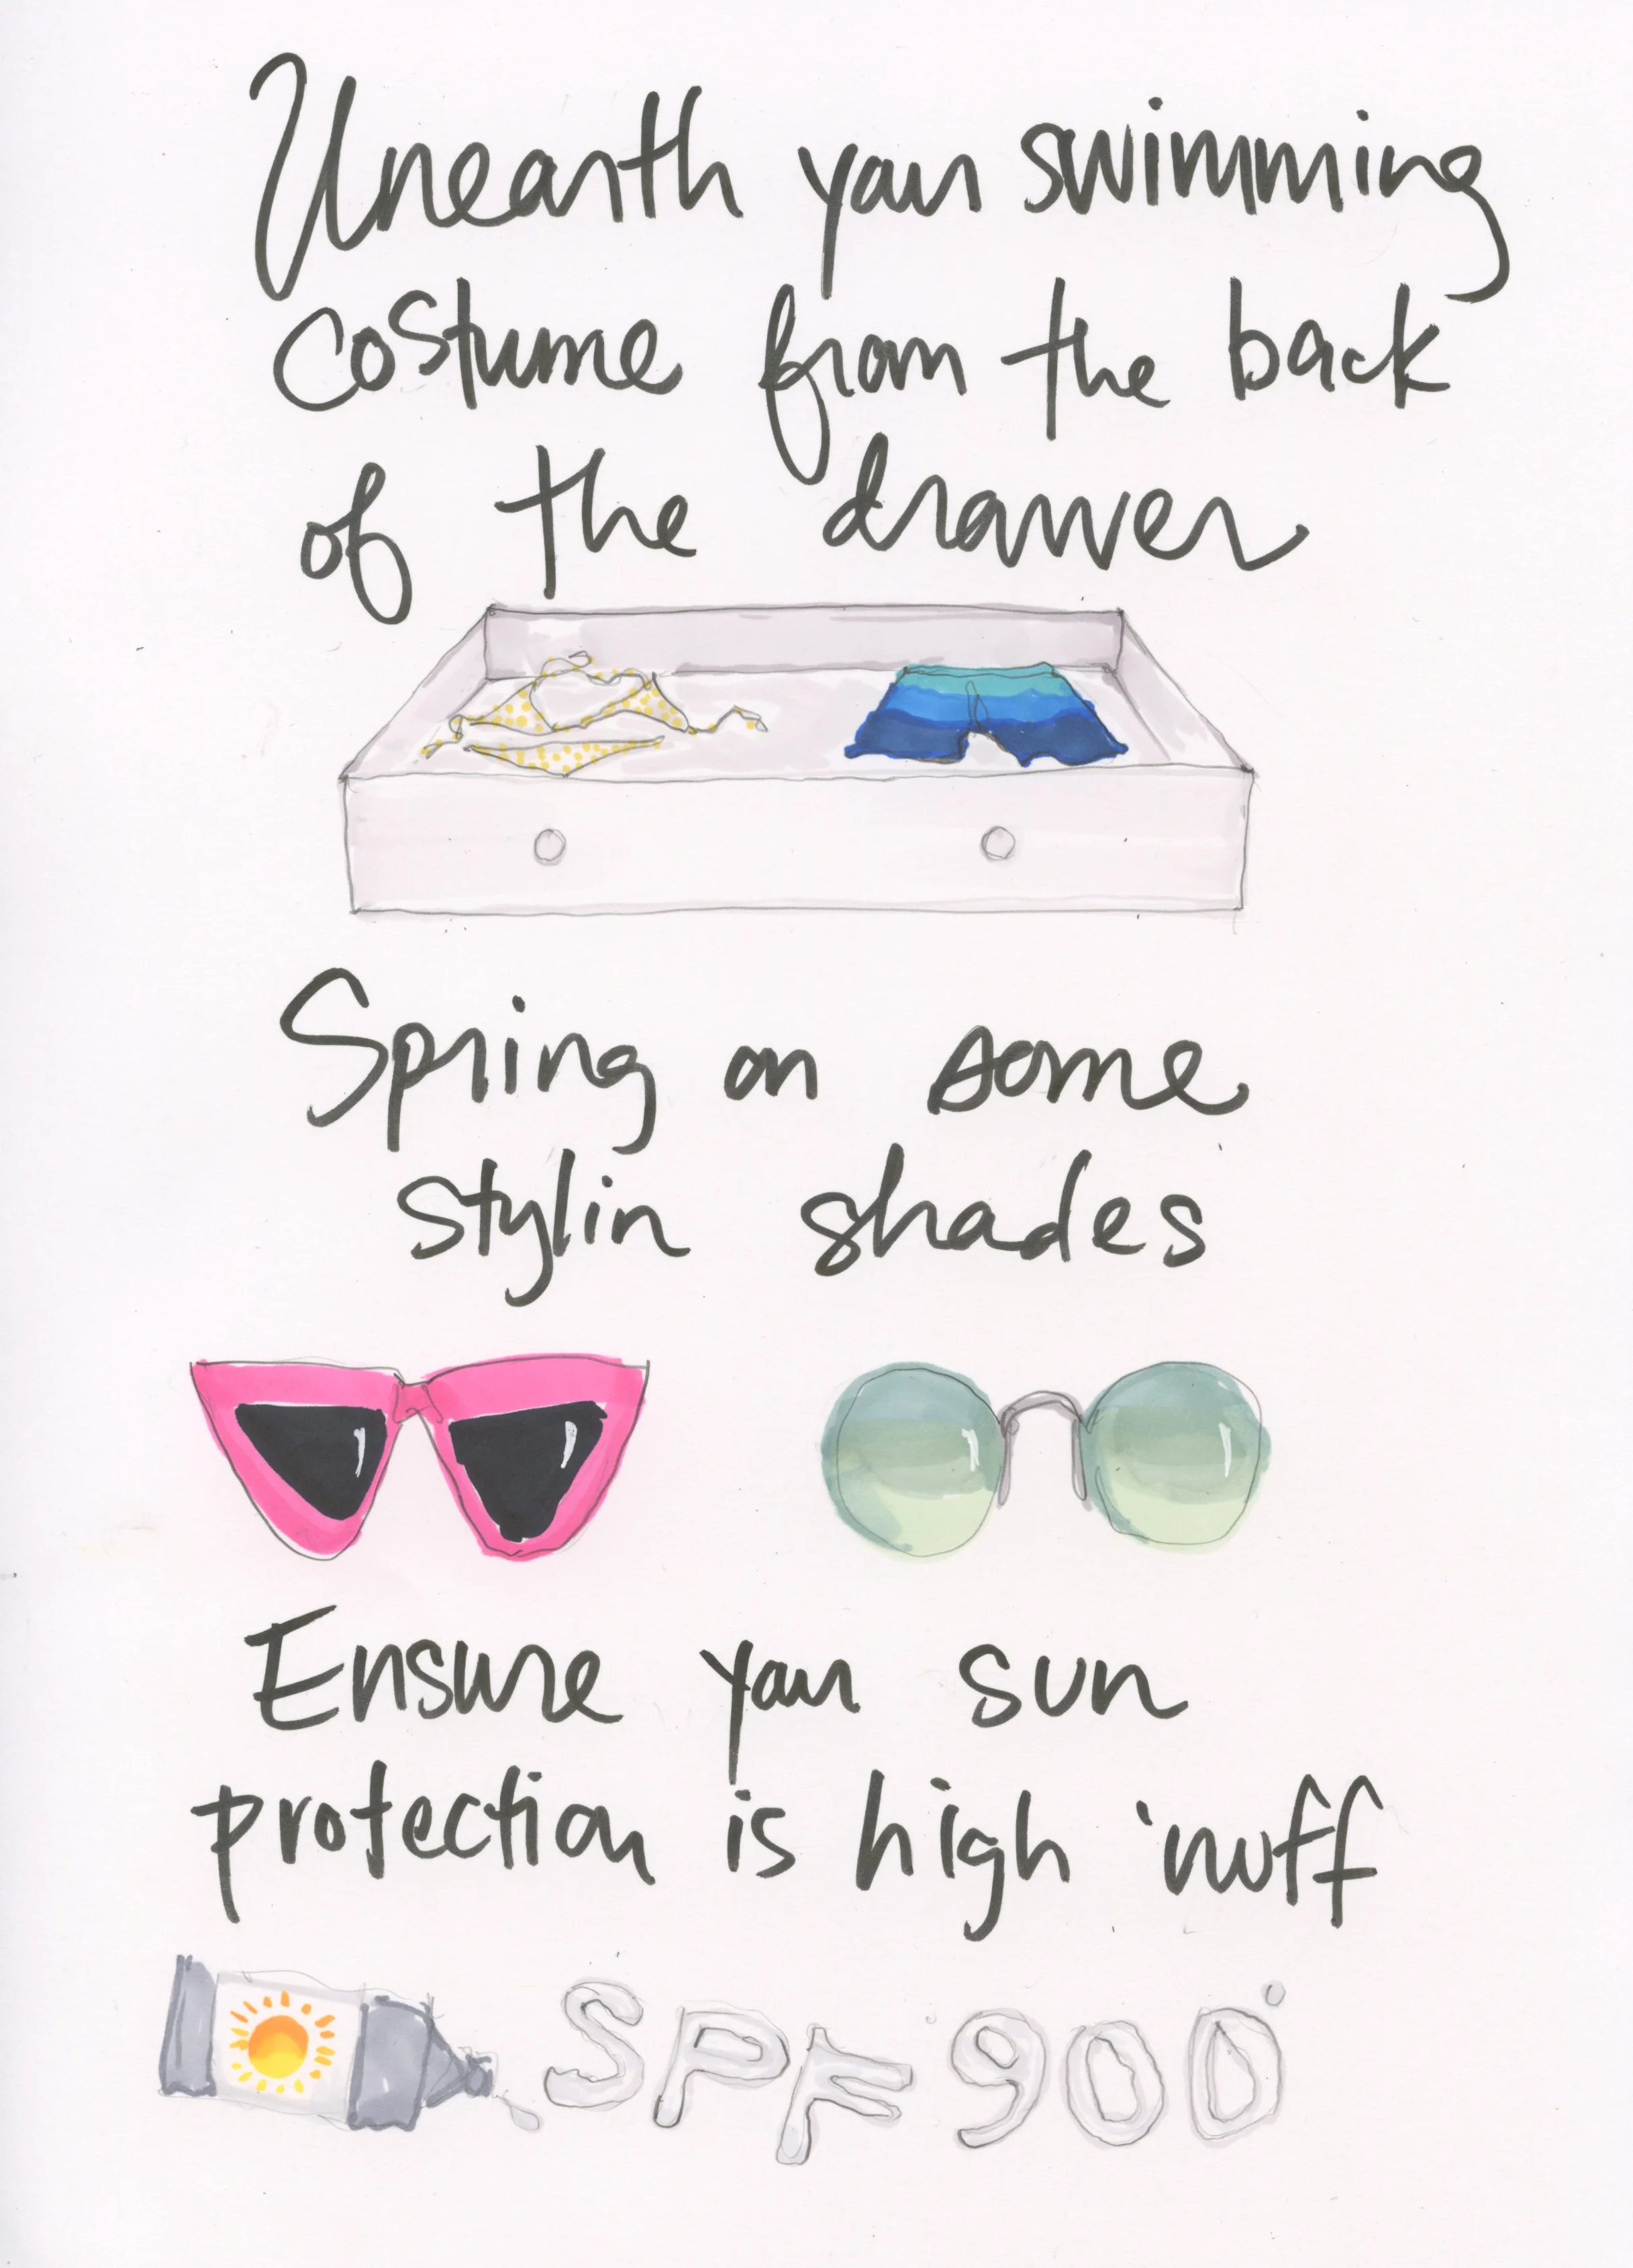 Unearth your swimming
costume from the back
of the drawer
Spring on some
stylin shades
Ensure your sun
protection is high 'nuff
SPF 900